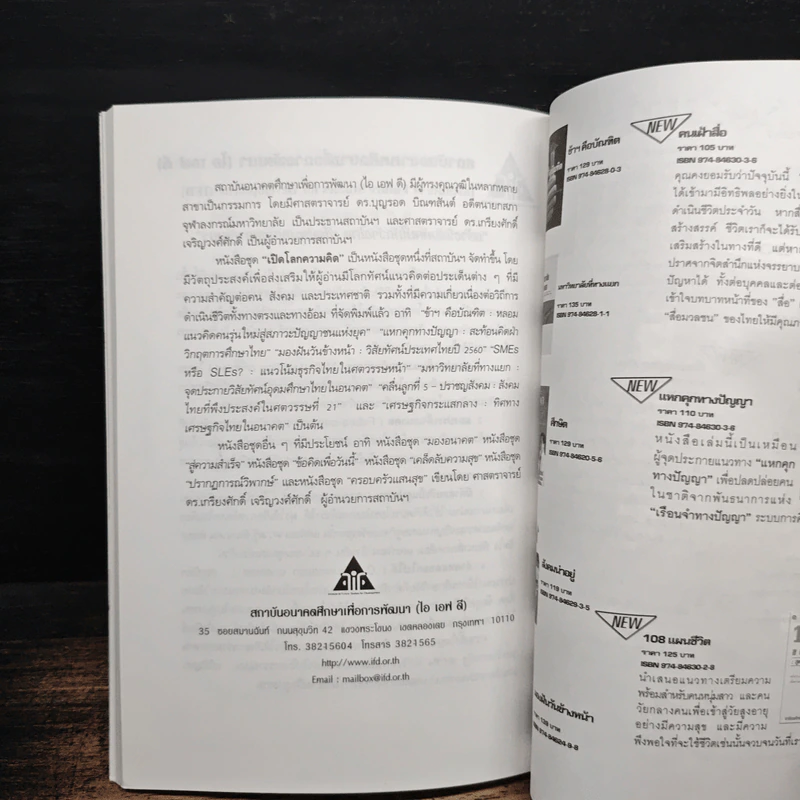 สถาบันอนาคตศึกษาเพื่อการพัฒนา (ไอ เอฟ ดี) มีผู้ทรงคุณวุฒิในหลากหลาย
สาขาเป็นกรรมการ โดยมีศาสตราจารย์ ดร.บุญรอด บิณฑสันต์ อดีตนายกสภา
จุฬาลงกรณ์มหาวิทยาลัย เป็นประธานสถาบันฯ และศาสตราจารย์ ดร.เกรียงศักดิ์
เจริญวงศ์ศักดิ์ เป็นผู้อำนวยการสถาบันฯ
หนังสือชุด "เปิดโลกความคิด" เป็นหนังสือชุดหนึ่งที่สถาบันฯ จัดทำขึ้น โดย
มีวัตถุประสงค์เพื่อส่งเสริมให้ผู้อ่านมีโลกทัศน์แนวคิดต่อประเด็นต่าง ๆ ที่มี
ความสำคัญต่อคน สังคม และประเทศชาติ รวมทั้งที่มีความเกี่ยวเนื่องต่อวิถีการ
ดำเนินชีวิตทั้งทางตรงและทางอ้อม ที่จัดพิมพ์แล้ว อาทิ "ข้าฯ คือบัณฑิต : หลอม
แนวคิดคนรุ่นใหม่สู่สภาวะปัญญาชนแห่งยุค" "แหกคุกทางปัญญา : สะท้อนคิดฝ่า
วิกฤตการศึกษาไทย" "มองฝันวันข้างหน้า : วิสัยทัศน์ประเทศไทยปี 2560" "SMEs
หรือ SLEs? : แนวโน้มธุรกิจไทยในศตวรรษหน้า" "มหาวิทยาลัยที่ทางแยก :
จุดประกายวิสัยทัศน์อุดมศึกษาไทยในอนาคต" "คลื่นลูกที่ 5 - ปราชญสังคม : สังคม
ไทยที่พึงประสงค์ในศตวรรษที่ 21" และ "เศรษฐกิจกระแสกลาง : ทิศทาง
เศรษฐกิจไทยในอนาคต" เป็นต้น
หนังสือชุดอื่น ๆ ที่มีประโยชน์ อาทิ หนังสือชุด "มองอนาคต" หนังสือชุด
"สู่ความสำเร็จ" หนังสือชุด "ข้อคิดเพื่อวันนี้" หนังสือชุด "เคล็ดลับความสุข" หนังสือชุด
"ปรากฏการณ์วิพากษ์" และหนังสือชุด "ครอบครัวแสนสุข" เขียนโดย ศาสตราจารย์
ดร.เกรียงศักดิ์ เจริญวงศ์ศักดิ์ ผู้อำนวยการสถาบันฯ
สถาบันอนาคตศึกษาเพื่อการพัฒนา (ไอ เอฟ ดี)
35 ซอยสมานฉันท์ ถนนสุขุมวิท 42 แขวงพระโขนง เขตคลองเตย กรุงเทพฯ 10110
โทร. 38215604 โทรสาร 3821565
http://www.ifd.or.th
Email : mailbox@ifd.or.th
ข้าฯ คือบัณฑิต
ราคา 129 บาท
ISBN 974-84628-0-3
มหาวิทยาลัยที่ทางแยก
ราคา 135 บาท
ISBN 974-84628-1-1
ราคา 129 บาท
ISBN 974-84620-5-6
สังคมน่าอยู่
ราคา 119 บาท
974-84629-3-5
มองฝันวันข้างหน้า
ราคา 139 บาท
974-84624-9-8
NEW
คนเฝ้าสื่อ
ราคา 105 บาท
ISBN 974-84630-3-6
คุณคงยอมรับว่าปัจจุบันนี้
ได้เข้ามามีอิทธิพลอย่างยิ่งใน
ดำเนินชีวิตประจำวัน หากสื่
สร้างสรรค์ ชีวิตเราก็จะได้รับ
เสริมสร้างในทางที่ดี แต่หาก
ปราศจากจิตสำนึกแห่งจรรยาบร
ปัญหาได้ ทั้งต่อบุคคลและต่อ
เข้าใจบทบาทหน้าที่ของ "สื่อ"
"สื่อมวลชน" ของไทยให้มีคุณภ
NEW
แหกคุกทางปัญญา
ราคา 110 บาท
ISBN 974-84630-3-6
หนังสือเล่มนี้เป็นเหมือน
ผู้จุดประกายแนวทาง "แหกคุก
ทางปัญญา" เพื่อปลดปล่อยคน
ในชาติจากพันธนาการแห่ง
"เรือนจำทางปัญญา" ระบบการศึ
NEW
108 แผนชีวิต
ราคา 125 บาท
ISBN 974-84630-2-8
นำเสนอแนวทางเตรียมความ
พร้อมสำหรับคนหนุ่มสาว และคน
วัยกลางคนเพื่อเข้าสู่วัยสูงอายุ
อย่างมีความสุข และมีความ
พึงพอใจที่จะใช้ชีวิตเช่นนั้นจวบจนวันที่เร